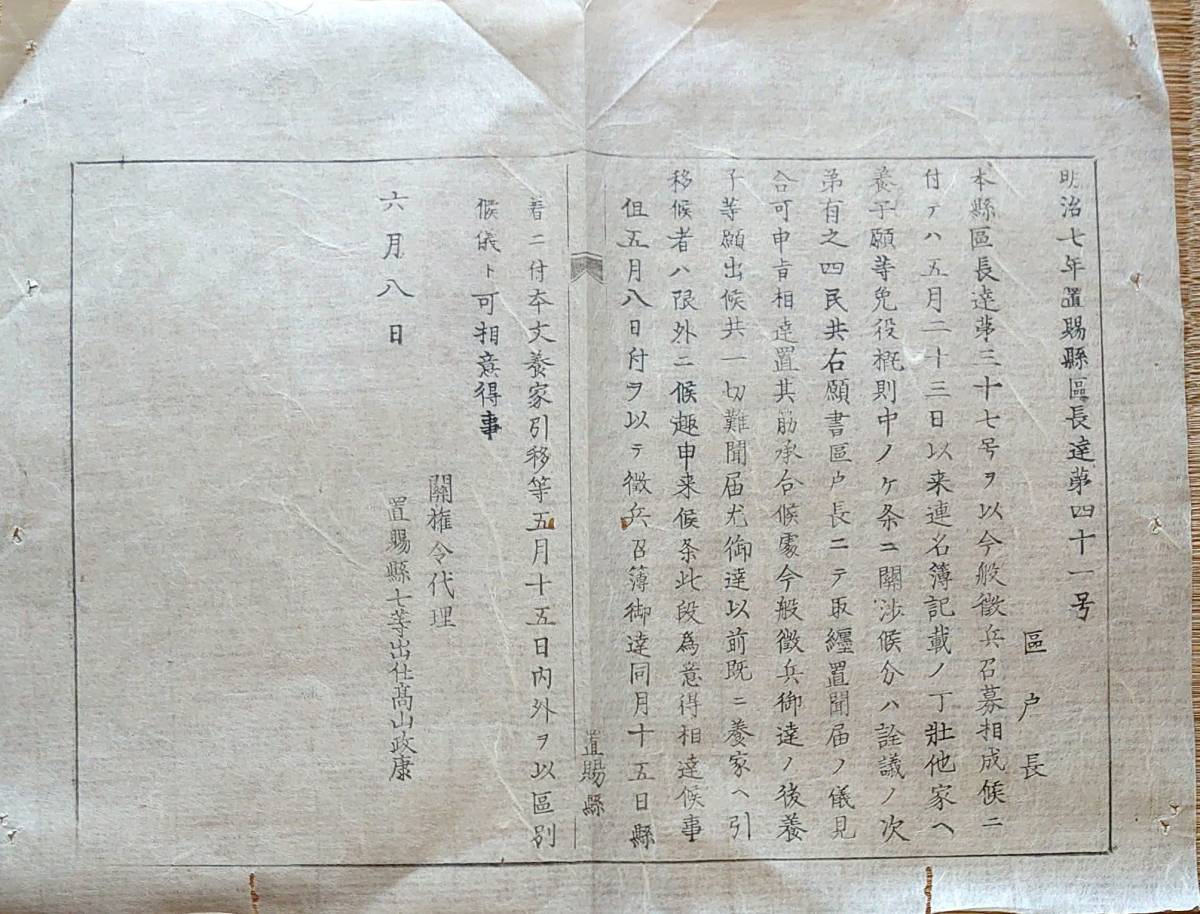 明治七年置賜縣區長達苐四十一号
區戸長
本縣區長達苐三十七号ヲ以今般徴兵召募相成候ニ
付テハ五月二十三日以来連名簿記載ノ丁壮他家ヘ
養子願等免役概則中ノケ条ニ關渉候分ハ詮議ノ次
苐有之四民共右願書區戸長ニテ取纒置聞届ノ儀見
合可申旨相達置其筋承合候處今般徴兵御達ノ後養
子等願出候共一切難聞届尤御達以前既ニ養家ヘ引
移候者ハ限外ニ候趣申来候条此段為意得相達候事
但五月八日付ヲ以テ徴兵召簿御達同月十五日縣
置賜縣
着ニ付本文養家引移等五月十五日内外ヲ以區别
候儀ト可相意得事
六月八日
關権令代理
置賜縣七等出仕髙山政康